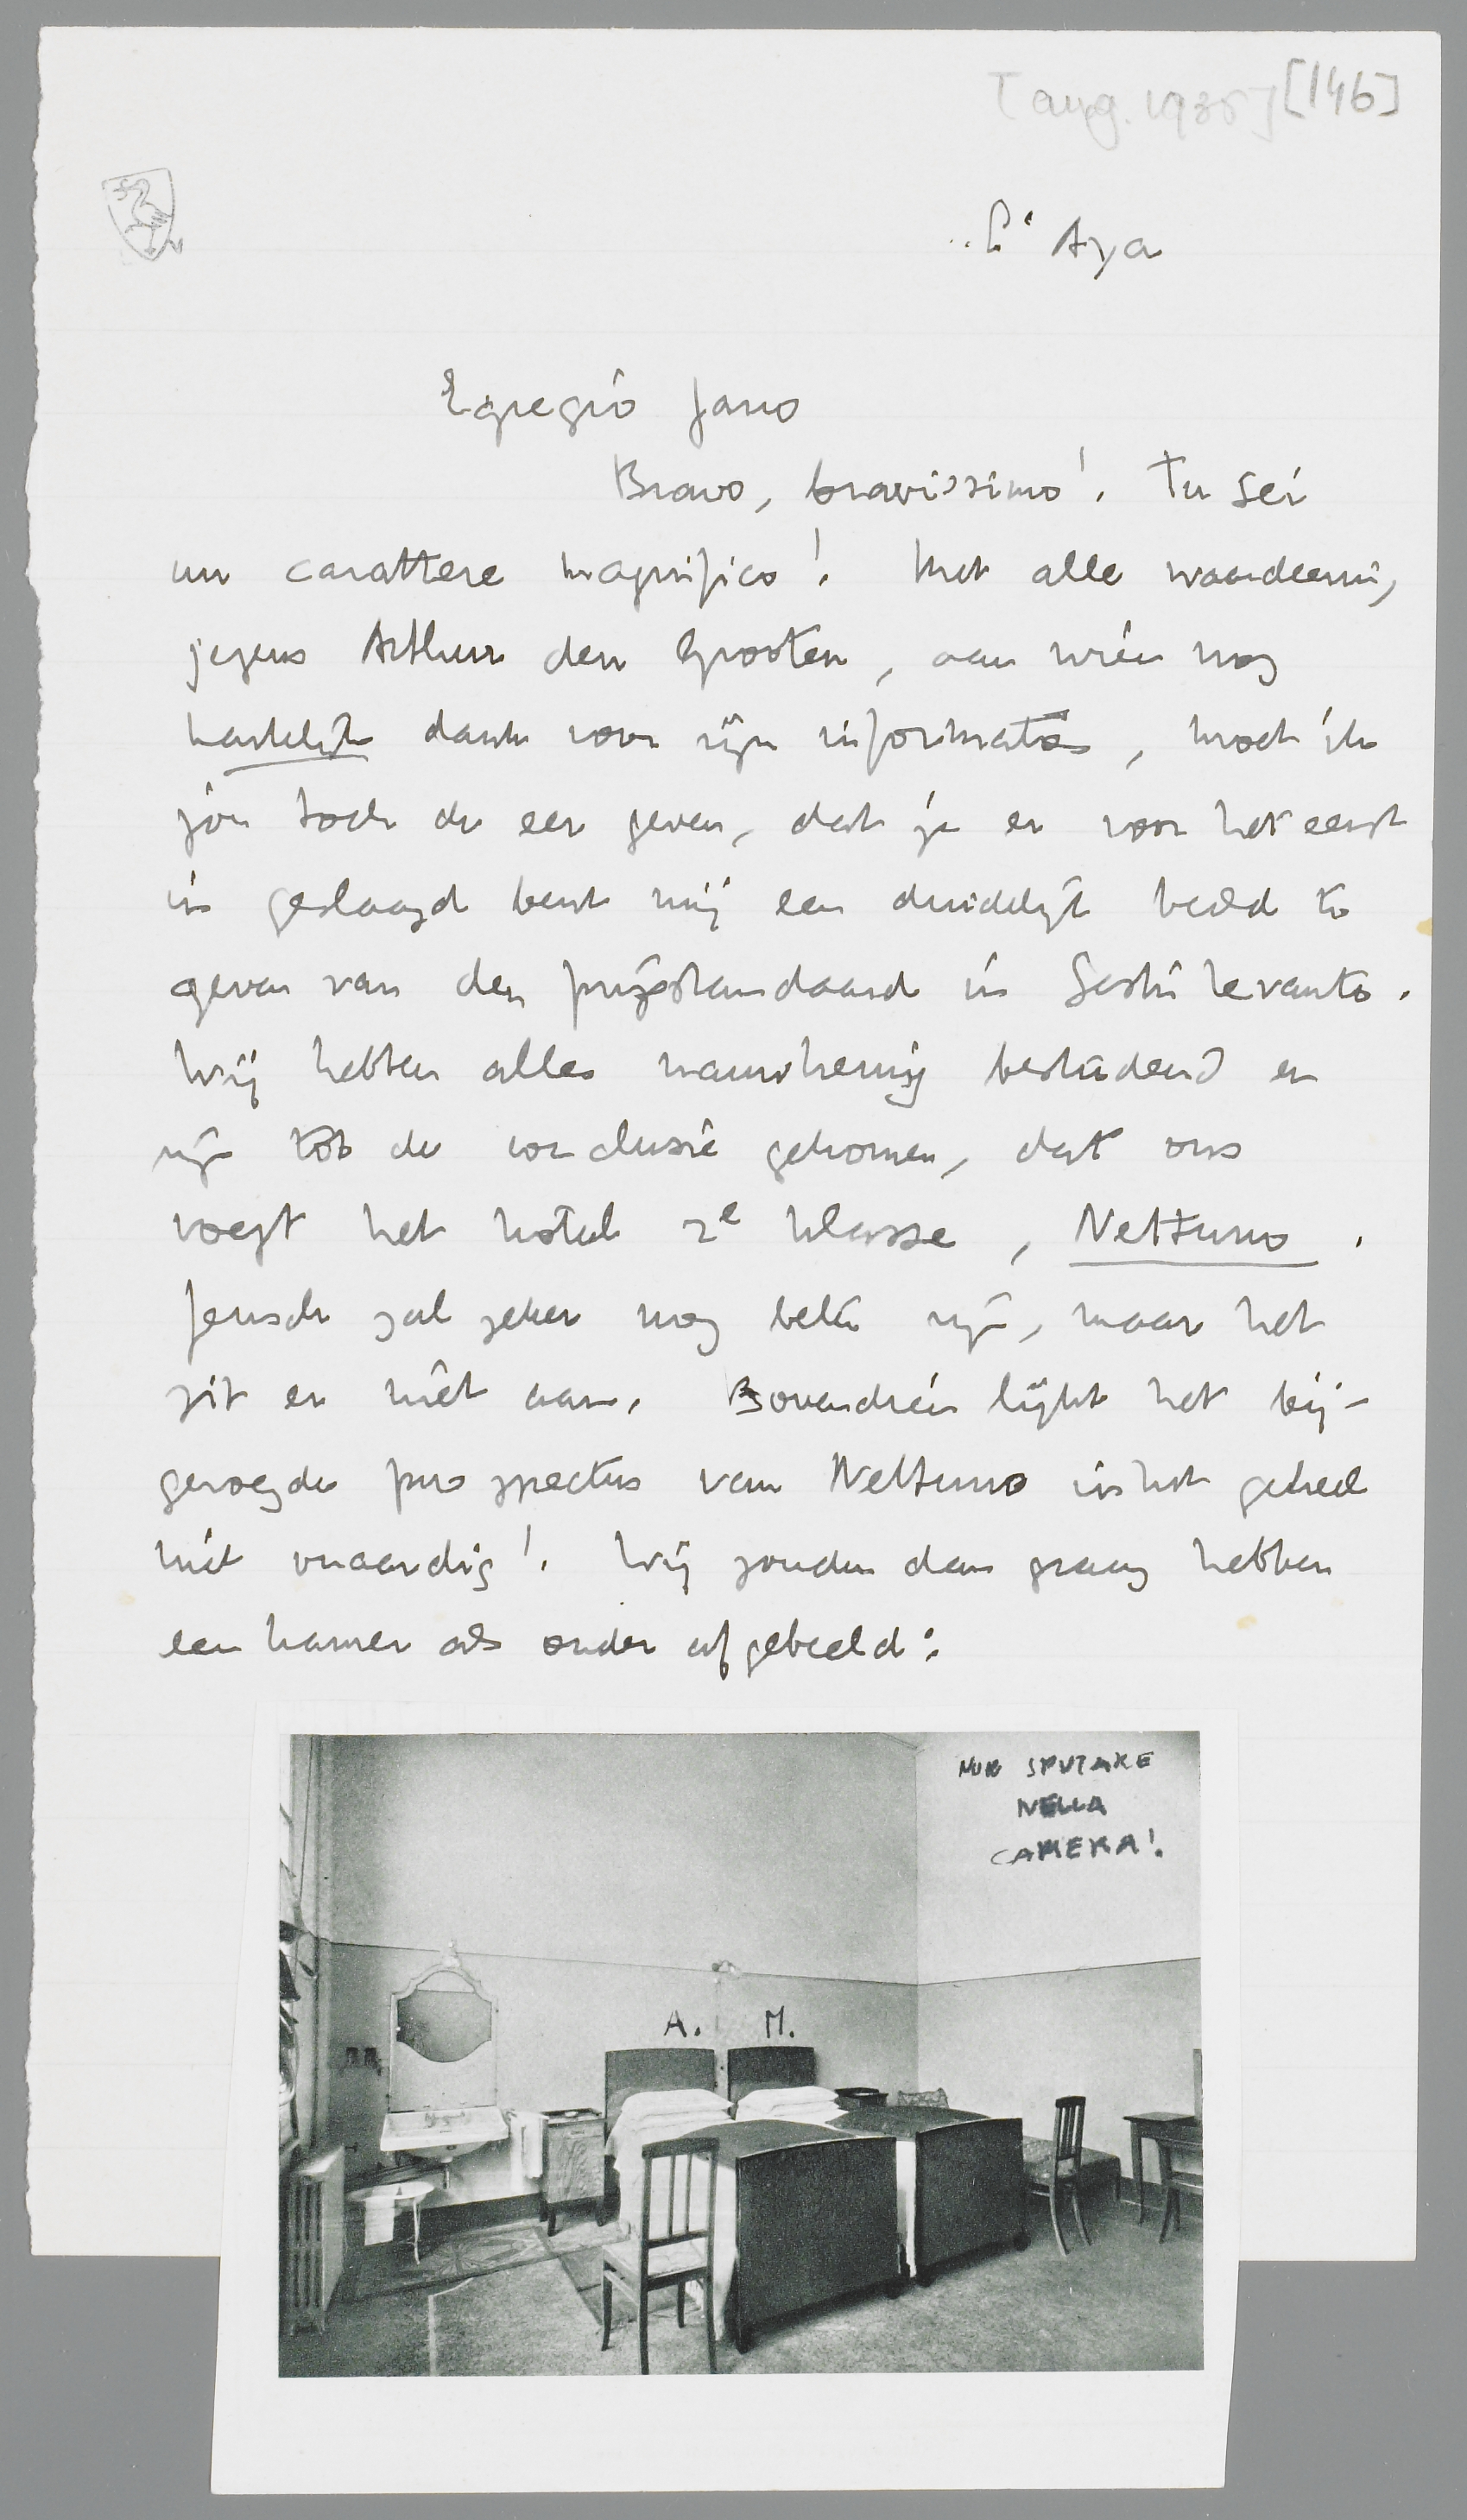 [aug. 1935] [146]
L'Aya
Egregio Jano
Bravo, bravissimo! Tu sei
un carattere magnifico! Met alle waardeering
jegens Arthur den Grooten, aan wien nog
hartelijk dank voor zijn informaties, moet ik
jou toch de eer geven, dat je er voor het eerst
in geslaagd bent mij een duidelijk beeld te
geven van den prijsstandaard in Sestri Levante.
Wij hebben alles nauwkeurig bestudeerd en
zijn tot de conclusie gekomen, dat ons
voegt het hotel 2e klasse, Nettuno.
Jensch zal zeker nog beter zijn, maar het
zit er niet aan. Bovendien lijkt het bij-
gevoegde prospectus van Nettuno in het geheel
niet onaardig! Wij zouden dan graag hebben
een kamer als onder afgebeeld:
NON SPUTARE
NELLA
CAMERA!
A. M.